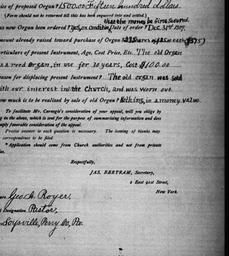 ice of proposed Organ? $1500.00 Fifteen hundred dollars
(Form should not be returned till this has been inquired into and settled.)
that the money be first secured.
as new Organ been ordered? yes, on condition Date of order? Dec. 31st, 1907
amount already raised toward purchase of Organ
articulars of present Instrument, Age, Cost Price, Etc. The old Organ
was a reed Organ, in use for 30 years, Cost $100.00
eason for displacing present Instrument? The old organ was sold
with our interest in the Church, and was worn out.
ow much is to be realized by sale of old Organ? Nothing, in a money value.
To facilitate Mr. Carnegie's consideration of your appeal, will you oblige by
in the above, which is sent for the purpose of summarizing information and does
imply favorable consideration of the appeal.
Precise answer to each question is necessary. The coming of thanks may
correspondence to be ignored.
* Application should come from Church authorities and not from private
Respectfully,
JAS. BERTRAM, Secretary,
2 East 91st Street,
New York.
Geo. R. Royer,
Designation Pastor,
Loysville, Perry Co., Pa.